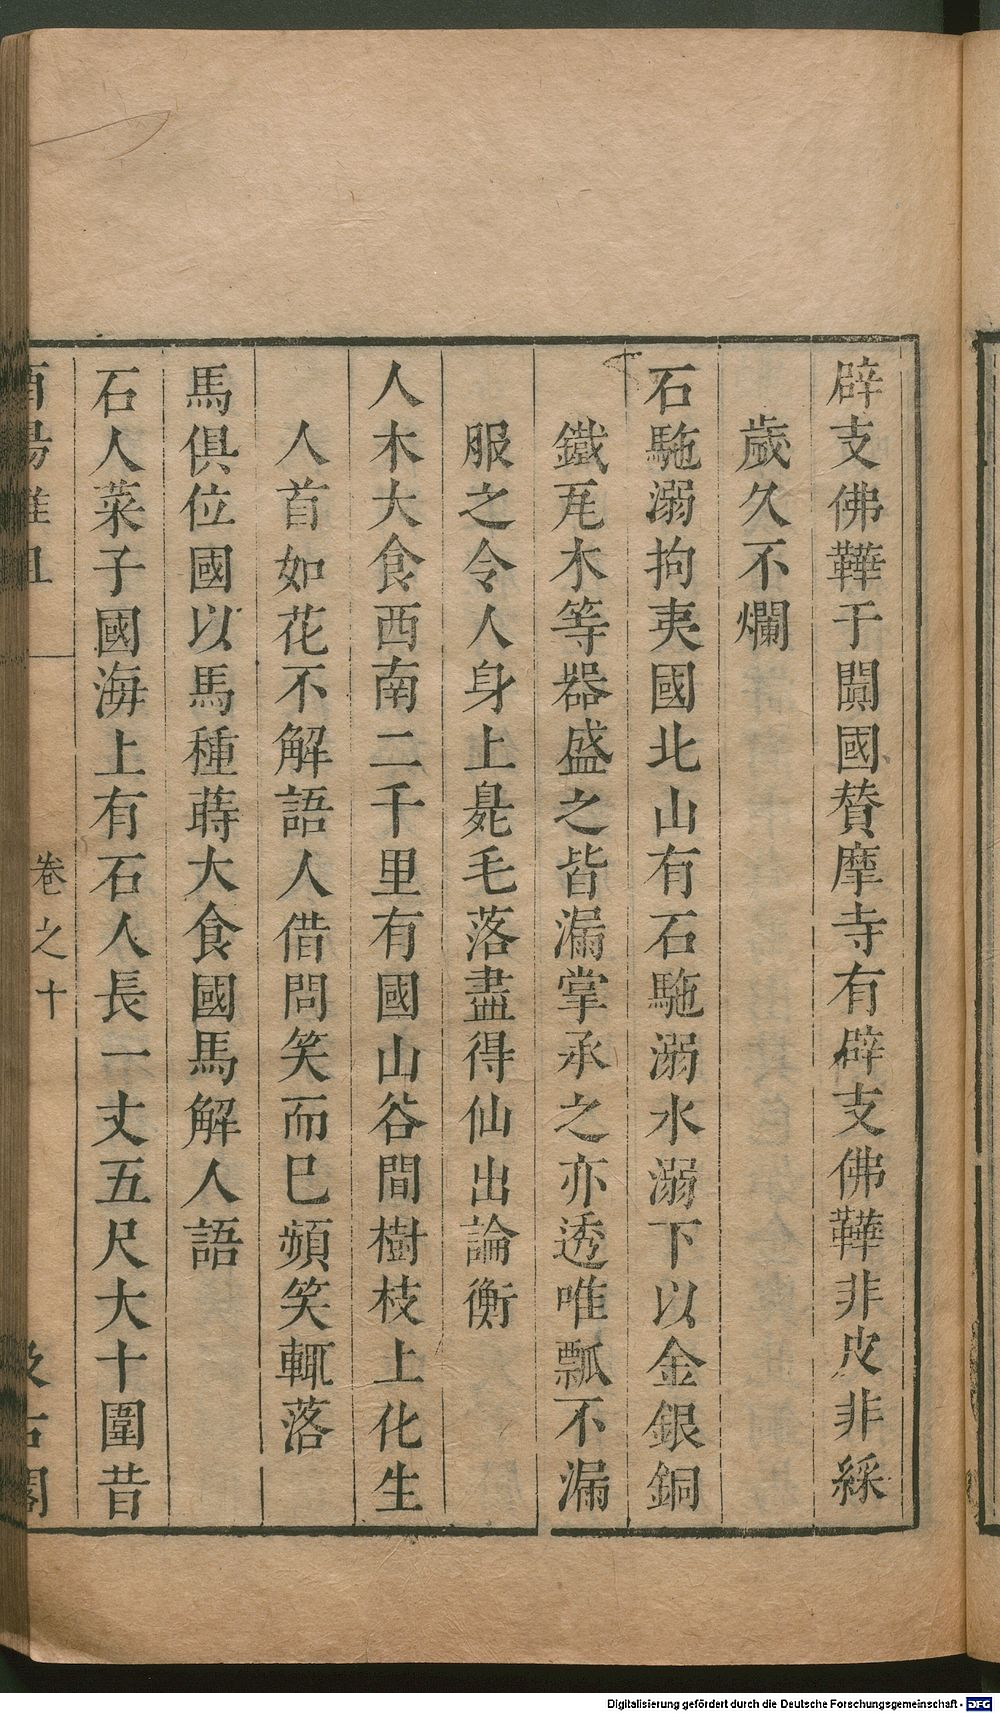 辟支佛鞾于闐國賛摩寺有辟支佛鞾非皮非綵
歲久不爛
石駞溺拘夷國北山有石駞溺水溺下以金銀銅
鐵瓦木等器盛之皆漏掌承之亦透唯瓢不漏
服之令人身上臭毛落盡得仙出論衡
人木大食西南二千里有國山谷間樹枝上化生
人首如花不解語人借問笑而巳頻笑輒落
馬俱位國以馬種蒔大食國馬解人語
石人菜子國海上有石人長一丈五尺大十圍昔
酉陽雜俎 卷之十 汲古閣
Digitalisierung gefördert durch die Deutsche Forschungsgemeinschaft - DFG